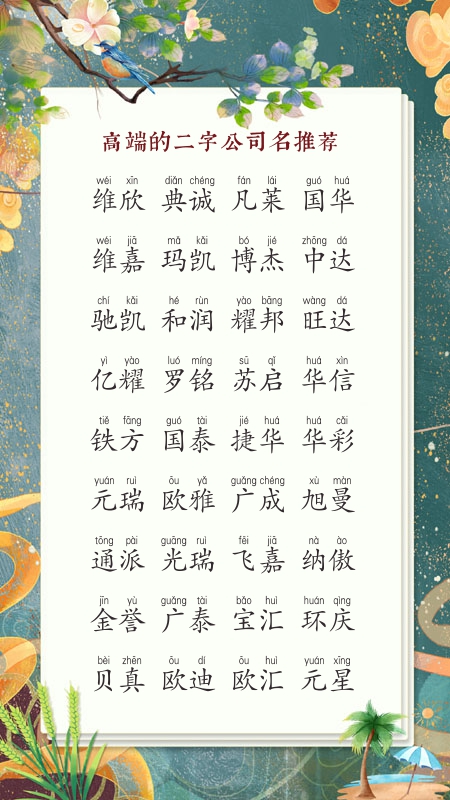 高端的二字公司名推荐
wéi xīn diǎn chéng fán lái guó huá
维欣 典诚 凡莱 国华
wéi jiā mǎ kǎi bó jié zhōng dá
维嘉 玛凯 博杰 中达
chí kǎi hé rùn yào bāng wàng dá
驰凯 和润 耀邦 旺达
yì yào luó míng sū qǐ huá xìn
亿耀 罗铭 苏启 华信
tiě fāng guó tài jié huá huá cǎi
铁方 国泰 捷华 华彩
yuán ruì ōu yǎ guǎng chéng xù màn
元瑞 欧雅 广成 旭曼
tōng pài guāng ruì fēi jiā nà ào
通派 光瑞 飞嘉 纳傲
jīn yù guǎng tài bǎo huì huán qìng
金誉 广泰 宝汇 环庆
bèi zhēn ōu dí ōu huì yuán xīng
贝真 欧迪 欧汇 元星